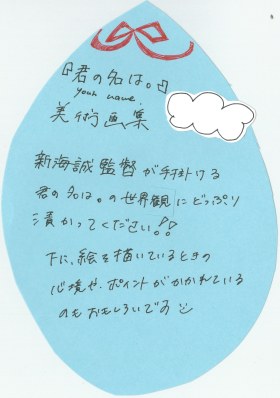 『君の名は。』
your name.
美術画集
新海誠監督が手掛ける
君の名は。の世界観にどっぷり
漬かってください!!
下に、絵を描いているときの
心境や、ポイントがかかれている
のもおもしろいです